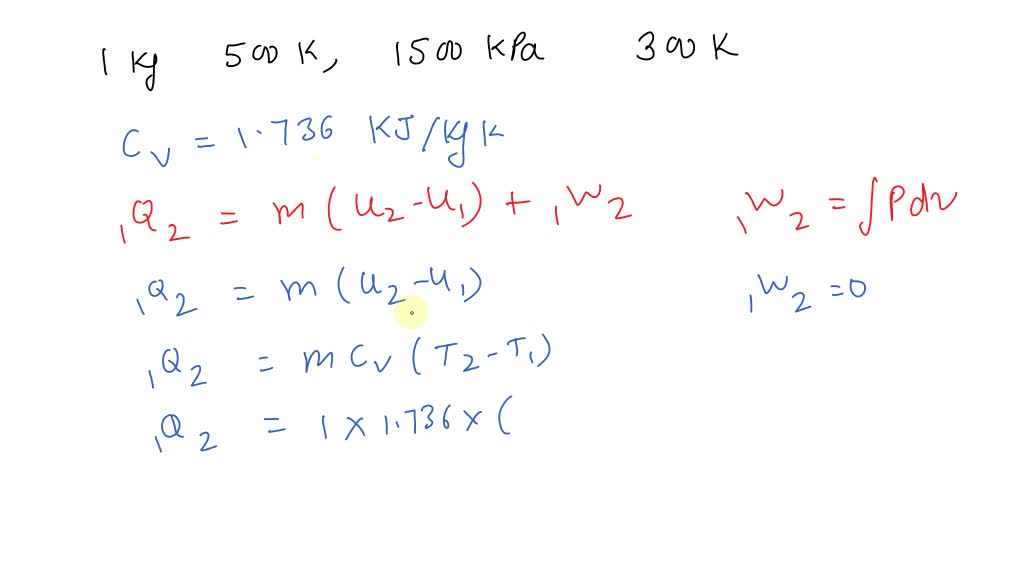 1 kg 500 K, 1500 KPa 300 K
Cv = 1.736 KJ/kg K
₁Q₂ = m (u₂-u₁) + ₁W₂ ₁W₂ = ∫Pdv
₁Q₂ = m (u₂-u₁) ₁W₂ = 0
₁Q₂ = m Cv (T₂-T₁)
₁Q₂ = 1 x 1.736 x (